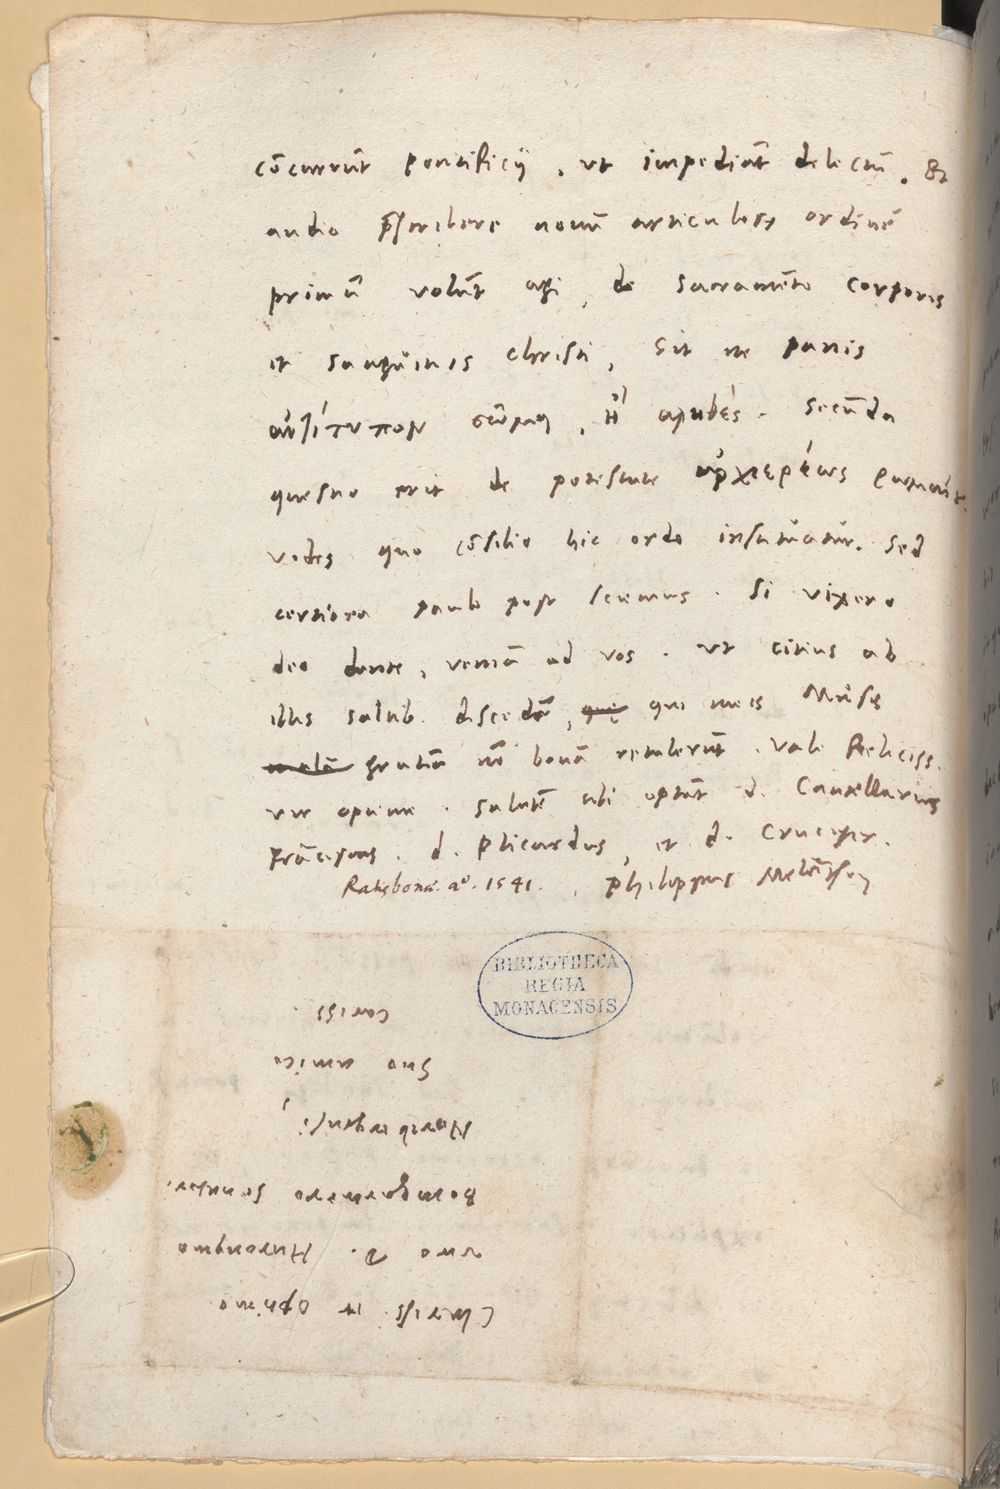 cōcurrūt pontificij, vt impediāt delectū. Et
audio p̄scribere nouū articulorꝫ ordinē
primū volūt agi, de sacramēto corporis
et sanguinis christi, Sit ne panis
ἀντίτυπον σῶμα, ἢ Secūda
questio erit de potestate ἀρχιερέως
vides quo cōsilio hic ordo instituatur. Sed
certiora paulo post sciemus. Si vixero
deo dante, veniā ad vos. vt citius ab
illis discedā, que qui meis Musis
malā gratiā nō bonā retulerūt. Vale feliciss.
vir optime. Salutē tibi optāt d. Cancellarius
Frāciscus. d. Plicardus, et d. Cruciger.
Ratisbonae. aº. 1541. Philippus Melāthon
BIBLIOTHECA
REGIA
MONACENSIS
Clariss. et optimo
viro D. Hieronymo
Bomgartnero Senatori
Noribergensi,
Suo amico
cariss.